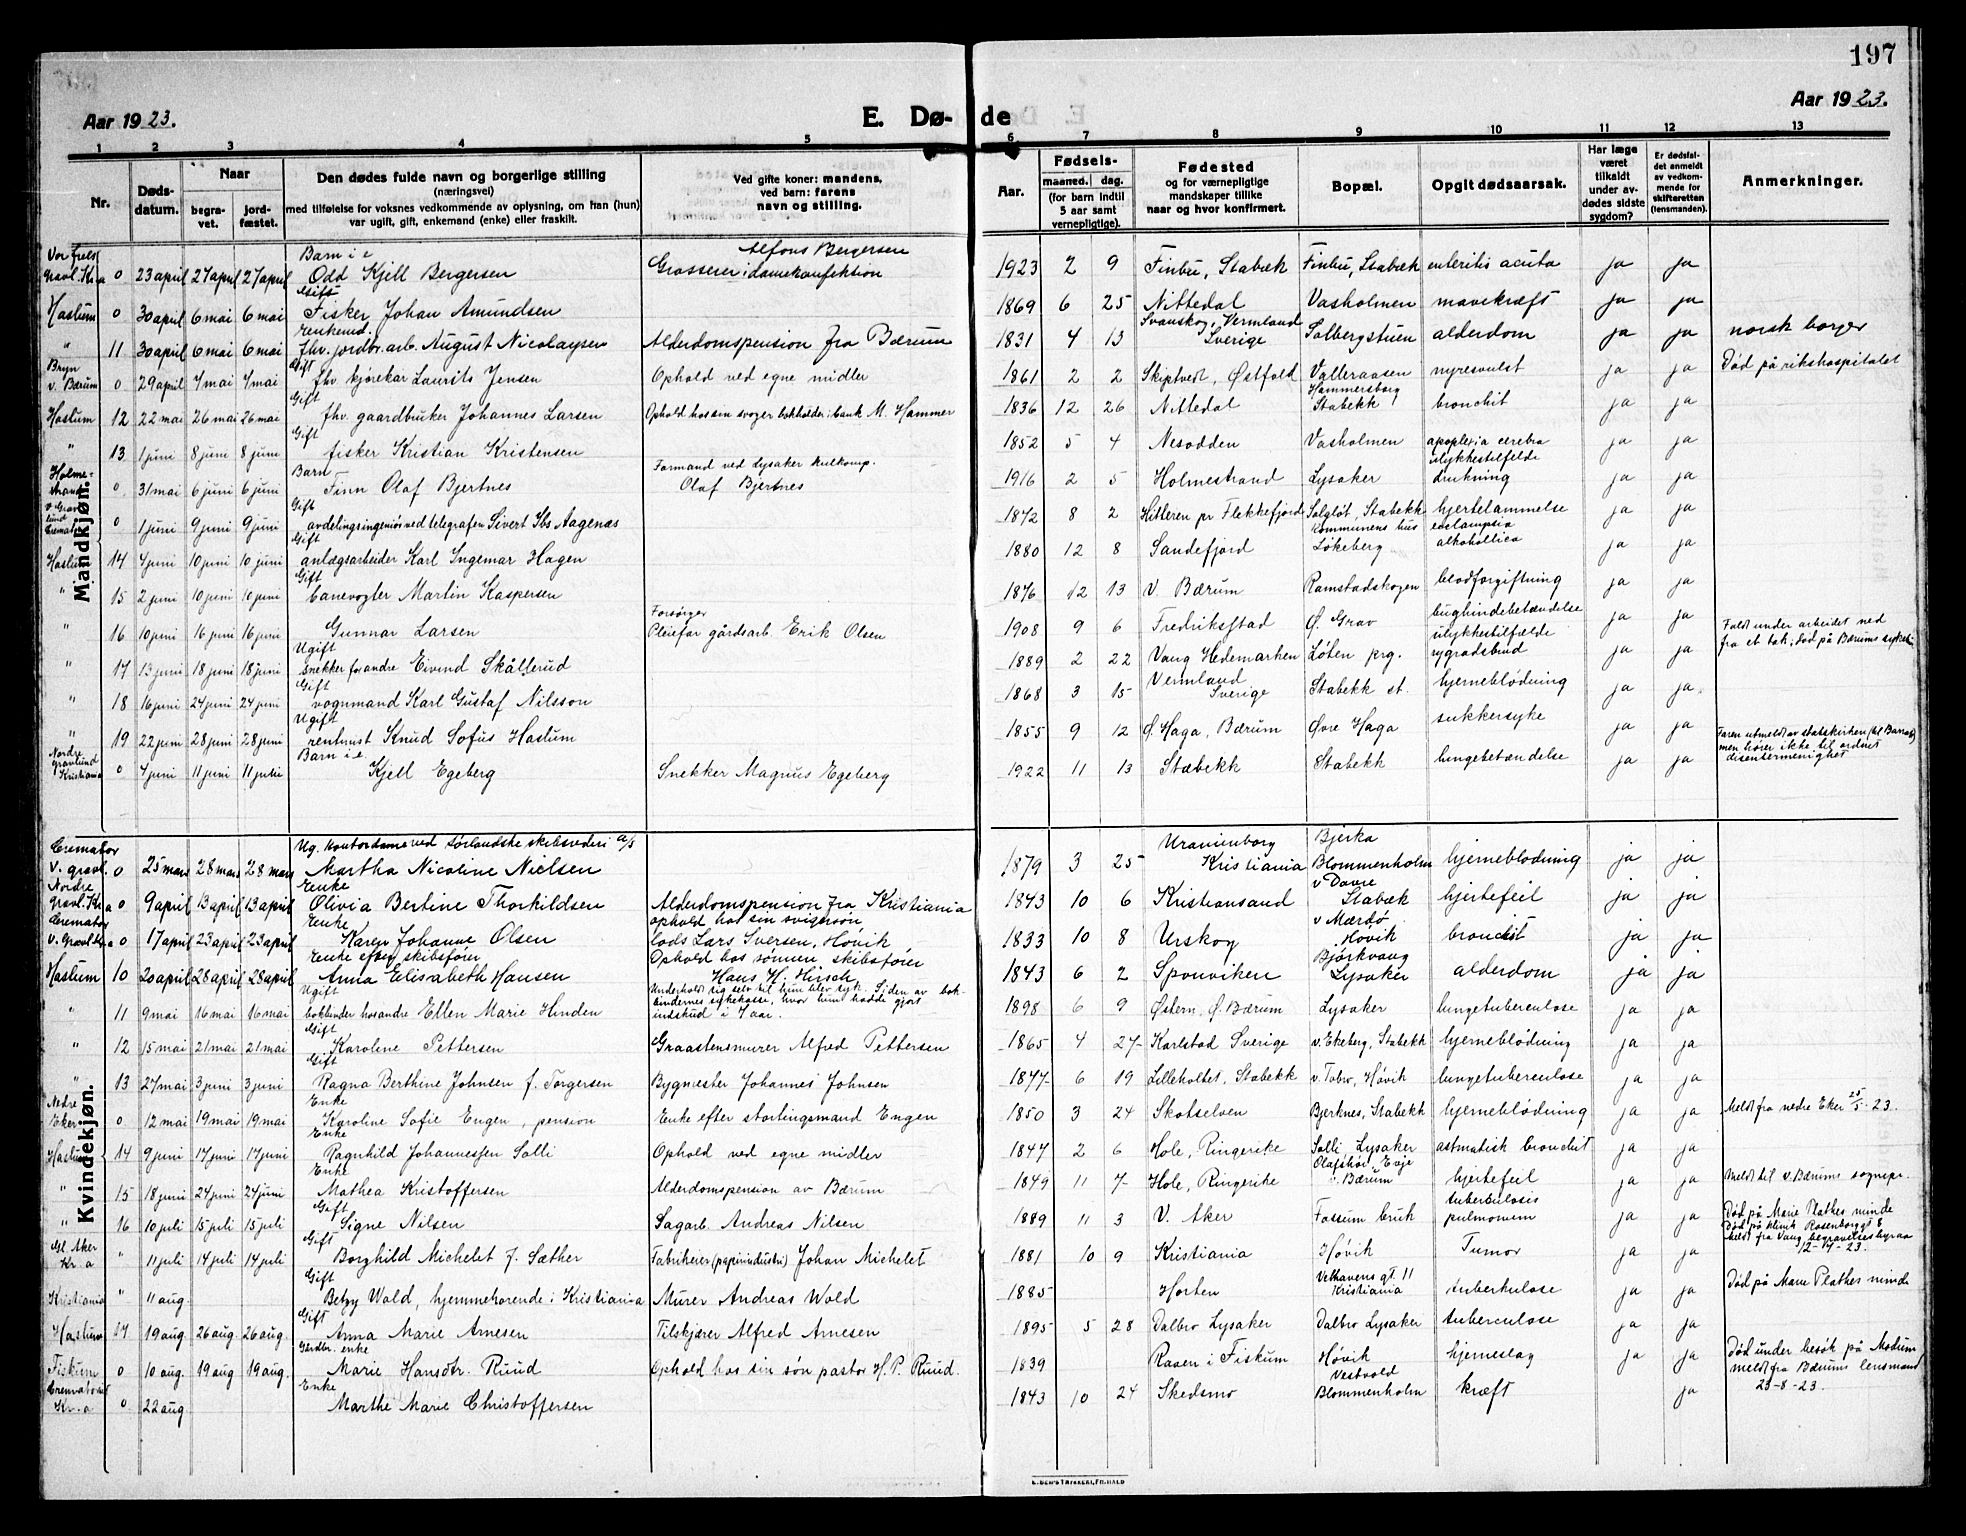 197
Aar 1923.
E. Dø- de
Aar 1923.
1 2 3 4 5 6 7 8 9 10 11 12 13
Nr.
Døds-
datum.
Naar
begra-
vet.
jord-
fæstet.
Den dødes fulde navn og borgerlige stilling
(næringsvei)
med tilføielse for voksnes vedkommende av oplysning, om han (hun)
var ugift, gift, enkemand (enke) eller fraskilt.
Ved gifte koner: mandens,
ved barn: farens
navn og stilling.
Aar.
Fødsels-
maaned. dag.
(for barn indtil
5 aar samt
vernepligtige).
Fødested
og for værnepligtige
mandskaper tillike
naar og hvor konfirmert.
Bopæl.
Opgit dødsaarsak.
Har læge
været
tilkaldt
under av-
dødes sidste
sygdom?
Er dødsfal-
det anmeldt
av vedkom-
mende for
skifteretten
(lensmanden).
Anmerkninger.
Mandkjøn.
Vor frels Gravl. Kr.a 0 23 april 27 april 27 april Barn i e Odd Kjell Bergersen Alfons Bergersen Grosserer i damekonfektion 1923 2 9 Finbu, Stabæk Finbu, Stabæk enteritis acuta ja ja
Haslum 0 30 april 6 mai 6 mai Gift Fisker Johan Amundsen 1869 6 25 Nittedal Vasholmen mavekræft ja ja
" 11 30 april 6 mai 6 mai Enkemd. fhv. jordbr. arb. August Nicolaysen Alderdomspension fra Bærum 1831 4 13 Svanskog, Vermland Sverige Solbergstuen alderdom ja ja norsk borger
Bryn v. Bærum 0 29 april 4 mai 4 mai Gift fhv kjørekar Laurits Jensen Ophold ved egne midler 1861 2 2 Skiptvedt, Østfold Valleraasen nyresvulst ja ja Död på rikshospitalet
Haslum 12 22 mai 26 mai 26 mai Gift fhv. gaardbruker Johannes Larsen Ophold hos sin svoger bokholder i bank M. Hammer 1836 12 26 Nittedal Hammersborg Stabekk bronchit ja ja
" 13 1 juni 8 juni 8 juni Gift fisker Kristian Kristensen 1852 5 4 Nesodden Vasholmen apoplexia cerebra ja ja
Holmestrand 0 31 mai 6 juni 6 juni Barn Finn Olaf Bjertnes Formand ved Lysaker kulkomp. Olaf Bjertnes 1916 2 5 Holmestrand Lysaker ulykkestilfelde drukning ja ja
v Gravlund Cremator 0 1 juni 9 juni 9 juni Gift avdelingsingeniør ved telegrafen Sivert Ibs Aagenæs 1872 8 2 Hitteren pr Flekkefjord Solgløt, Stabekk hjertelammelse ja ja
Haslum 14 4 juni 10 juni 10 juni Gift anlægsarbeider Karl Ingemar Hagen 1880 12 8 Sandefjord Kommunens hus Løkeberg eclampsia alkohollica ja ja
" 15 2 juni 10 juni 10 juni Gift banevogter Martin Kaspersen 1876 12 13 V. Bærum Ramstadskogen blodforgiftning ja ja
" 16 10 juni 16 juni 16 juni Gunnar Larsen Forsørger Pleiefar gårdsarb. Erik Olsen 1908 9 6 Fredriksstad Ø. Grav bughindebetændelse ja ja
" 17 13 juni 18 juni 18 juni Ugift Snekker forandre Eivind Skållerud 1889 2 22 Vang Hedemarken Løten prg. ulykkestilfælde rygradsbrud ja ja Faldt under arbeidet ned fra et tak; död på Bærums sykeh.
" 18 16 juni 24 juni 24 juni Gift vognmand Karl Gustaf Nilsson 1868 3 15 Vermland Sverige Stabekk st. hjerneblödning ja ja
" 19 22 juni 28 juni 28 juni Ugift rentenist Knud Sofus Haslum 1855 9 12 Ø. Haga, Bærum Øvre Haga sukkersyke ja ja
Nordre gravlund Kristiania 0 4 juni 11 juni 11 juni Barn i e. Kjell Egeberg Snekker Magnus Egeberg 1922 11 13 Stabekk Stabekk lungebetændelse ja ja Faren utmeldt av statskirken men hører ikke til ordnet disentermenighet
Kvindekjøn.
Cremator V. gravl. 0 25 mars 28 mars 28 mars Ug. Kontordame ved Sørlandske skibsrederi A/S Martha Nicoline Nielsen 1879 3 25 Uranienborg Kristiania Bjerka Blommenholm hjerneblödning ja ja
Nordre Gravl. Kr.a 0 9 april 13 april 13 april Enke Olivia Bertine Thorkildsen Alderdomspension fra Kristiania 1843 10 6 Kristiansand v Davre Stabæk hjertefeil ja ja
Cremator V. Gravl. Kr.a 0 17 april 23 april 23 april Enke Karen Johanne Olsen ophold hos sin svigersøn lods Lars Iversen, Høvik 1833 10 8 Urskog v Mærdø Høvik bronchit ja ja
Haslum 10 20 april 28 april 28 april Enke efter skibsfører Anna Elisabeth Hansen Ophold hos sønnen skibsfører Hans H. Hirsch 1843 6 2 Sponviken Bjørkvang Lysaker alderdom ja ja
" 11 9 mai 16 mai 16 mai Ugift bokbinder hos andre Ellen Marie Hinden Underholdt sig selv til hun blev syk. Siden av bokbindernes sykekasse, hvor hun hadde gjort indskud i 7 aar. 1898 6 9 Østern, Ø. Bærum Lysaker lungetuberculose ja ja
" 12 15 mai 21 mai 21 mai Gift Karoline Pettersen Graastensmurer Alfred Pettersen 1865 4 27 Karlstad Sverige v. Ekeberg, Stabekk hjerneblödning ja ja
" 13 27 mai 3 juni 3 juni Gift Ragna Berthine Johnsen f. Torgersen Bygmester Johannes Johnsen 1847 6 19 Lilleholtet, Stabekk v. Tabor, Høvik lungetuberculose ja ja
Nedre Eker 0 12 mai 19 mai 19 mai Enke Karoline Sofie Engen, pension Enke efter stortingsmand Engen 1850 3 24 Skotselven Bjerknes, Stabekk hjerneblödning ja ja Meldt fra nedre Eker 25/5-23.
Haslum 14 9 juni 17 juni 17 juni Enke Ragnhild Johannessen Solli Ophold ved egne midler 1847 2 6 Hole, Ringerike Solli Lysaker astmatisk bronchit ja ja
" 15 18 juni 24 juni 24 juni Enke Mathea Kristoffersen Alderdomspension av Bærum 1849 11 7 Hole, Ringerike Evje v. Bærum hjertefeil ja ja Meldt til v. Bærums sognepr.
" 16 10 juli 15 juli 15 juli Gift Signe Nilsen Sagarb. Andreas Nilsen 1889 11 3 V. Aker Fossum bruk tuberbulosis pulmonum ja ja Död på Marie Plathes minde
Gl. Aker Kr.a " 11 juli 14 juli 14 juli Gift Borghild Michelet f. Sæther Fabrikeier (papirindustri) Johan Michelet 1881 10 9 Kristiania Høvik Tumor ja ja Död på klinik Rosenborggt 8 Meldt fra Vang begravelsesbyraa 12-7-23.
Kristiania " 11 aug Gift Betzy Wold, hjemmehørende i Kristiania Murer Andreas Wold 1885 Horten Velhavens gt. 11 Kristiania tuberkulose ja ja Död på Marie Plathes minde
Haslum 17 19 aug. 26 aug. 26 aug. Gift Anna Marie Arnesen Tilskjærer Alfred Arnesen 1895 5 28 Dalbro Lysaker Dalbro Lysaker tuberculose ja ja
Fiskum 0 10 aug. 19 aug 19 aug. Gårdbr. enke Marie Hansdtr. Ruud Ophold hos sin sön pastor H. P. Ruud. 1839 Raaen i Fiskum Høvik hjerneslag ja ja Död under besök på Modum meldt fra Bærums lensmand 23-8-23.
Crematoriet Kr.a 0 22 aug Enke Marthe Marie Christoffersen 1843 10 24 Skedsmo Vestvold Blommenholm kræft ja